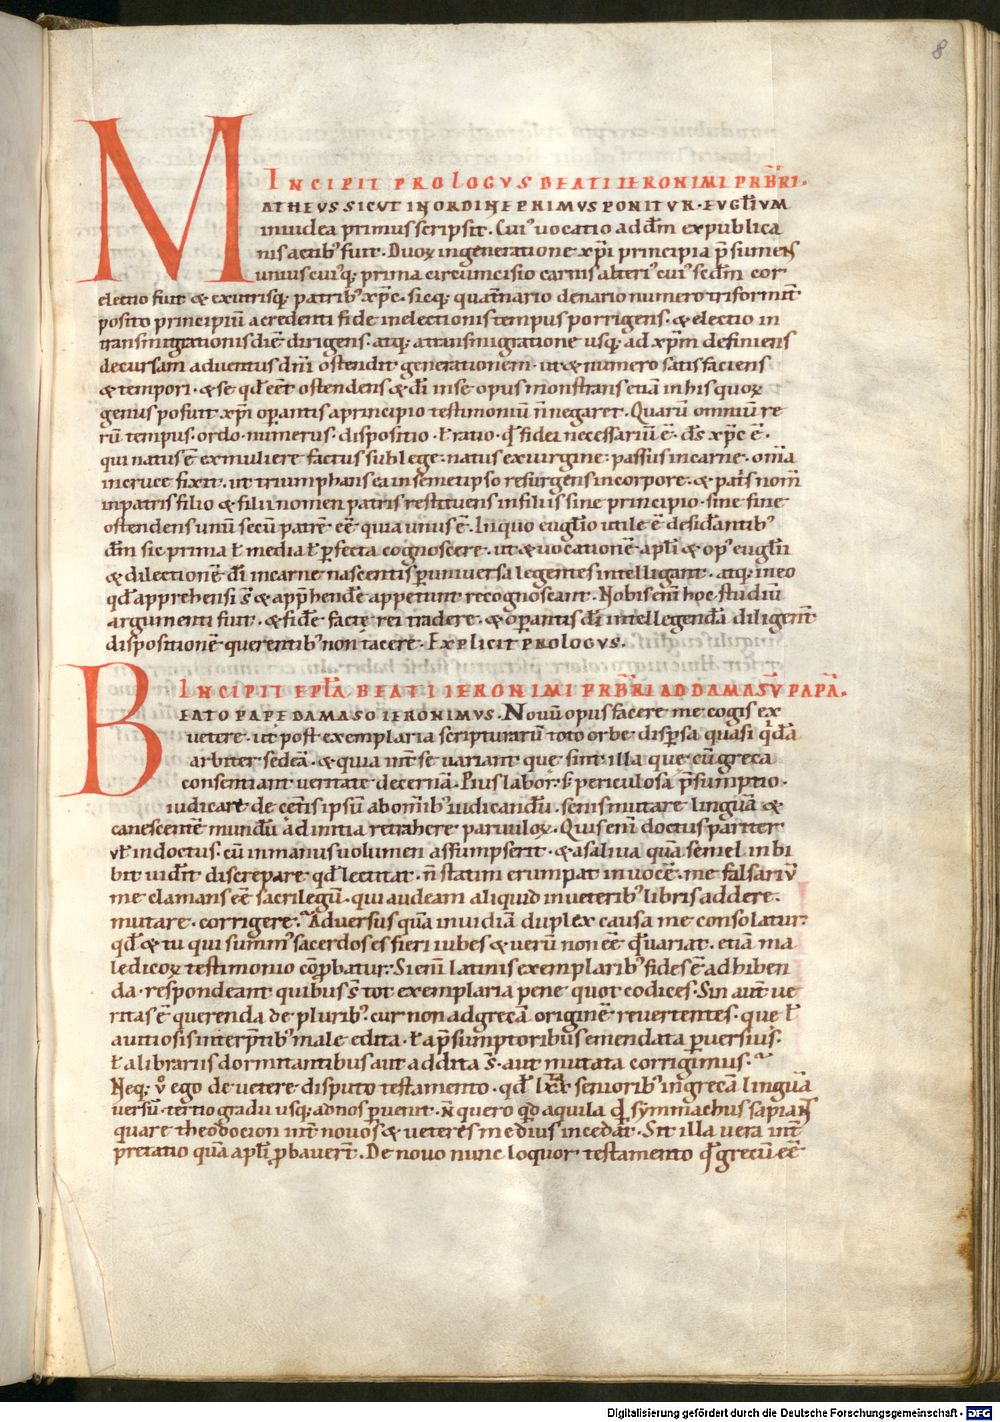 8
INCIPIT PROLOGVS BEATI IERONIMI PRB̅RI.
MATHEVS SICUT IN ORDINE PRIMUS PONITVR. EVGL̅IVM
in iudea primus scripsit. Cui᾽ uocatio ad dm̅ ex publica
nis actib᾽ fuit. Duoꝝ in generatione xp̅i principia p̅sumens
unius cui᾽ q; prima circumcisio carnis alteri᾽ cui᾽ scdm̅ cor
electio fuit & ex utrisq; patrib᾽ xp̅c. sicq; quat̅nario denario numero triformit̅
posito principiu̅ a credendi fide in electionis tempus porrigens. & electio in
transmigrationis die̅ dirigens. atq; a transmigratione usq; ad xp̅m definiens
decursam aduentus dn̅i ostendit generationem. ut & numero satisfaciens
& tempori. & se qd̅ e̅et ostendens & di̅ in se opus monstrans etia̅ in his quoꝝ
genus posuit xp̅i op̅antis a principio testimoniu̅ n̅ negaret. Quaru̅ omniu̅ re
ru̅ tempus. ordo. numerus. dispositio. ł ratio. qd̅ fidei necessariu̅ e̅. ds̅ xp̅c e̅.
qui natus e̅ ex muliere factus sub lege. natus ex uirgine. passus in carne. om̅a
in cruce fixit. ut triumphans ea in semetipso resurgens in corpore. & pat̅s nom̅
in patris filio & filii nomen patris restituens in filiis sine principio. sine fine
ostendens unu̅ secu̅ patre̅ e̅e quia unus e̅. In quo eugl̅io utile e̅ desid̅antib᾽
dm̅ sic prima ł media ł p̅fecta cognoscere. ut & uocatione̅ apl̅i & op᾽ eugl̅ii
& dilectione̅ di̅ in carne nascentis p̅ uniuersa legentes intelligant. atq; in eo
qd̅ apprehensi s̅ & app̅hende̅ appetunt recognoscant. Nobis eni̅ hoc studiu̅
argumenti fuit. & fide̅ facte̜ rei tradere. & op̅antis di̅ intellegenda̅ diligent̅
dispositione̅ querentib᾽ non tacere. EXPLICIT PROLOGVS.
INCIPIT EPL̅A BEATI IERONIMI PRB̅RI AD DAMASV̅ PAPA̅.
BEATO PAPE DAMASO IERONIMVS. Nouu̅ opus facere me cogis ex
uetere. ut post exemplaria scripturaru̅ toto orbe disp̅sa quasi qda̅
arbiter sedea̅. & quia int̅ se uariant que sint illa que cu̅ greca
consentiant ueritate decerna̅. Pius labor. s̅ periculosa p̅sumptio.
iudicare de cet̅is ipsu̅ ab omib᾽ iudicandu̅. senis mutare lingua̅ &
canescente̅ mundu̅ ad initia retrahere paruuloꝝ. Quis eni̅ doctus pariter
uł indoctus. cu̅ in manus uolumen assumpserit. & a saliua qua̅ semel inbi
bit uid̅it discrepare qd̅ lectitat. n̅ statim erumpat in uoce̅. me falsariu̅
me clamans e̅e sacrilegu̅. qui audeam aliquid in uetertib᾽ libris addere.
mutare. corrigere? Aduersus qua̅ inuidia̅ duplex causa me consolatur.
qd̅ & tu qui summ᾽ sacerdos es fieri iubes & ueru̅ non e̅e qd̅ uariat. etia̅ ma
ledicoꝝ testimonio co̅p̅batur. Si eni̅ latinis exemplarib᾽ fides e̅ adhiben
da. respondeant quibus s̅ tot exemplaria pene quot codices. Sin aut̅ ue
ritas e̅ querenda de plurib᾽. cur non ad greca̅ origine̅ reuertentes. que ł
a uitiosis interp̅tib᾽ male edita. ł a p̅sumptoribus emendata p̅uersius.
ł a librariis dormitantibus aut addita s̅. aut mutata corrigimus.
Neq; u̅ ego de uetere disputo testamento. qd̅ lxx seniorib᾽ in greca̅ lingua̅
uersu̅. tertio gradu usq; ad nos p̅uenit. n̅ quero qd̅ aquila qd̅ symmachus sapiant
quare theodocion int̅ nouos & ueteres medius incedat. Sit illa uera int̅
p̅retatio qua̅ apl̅i p̅bauert̅. De nouo nunc loquor testamento qd̅ grecu̅ e̅e
Digitalisierung gefördert durch die Deutsche Forschungsgemeinschaft - DFG